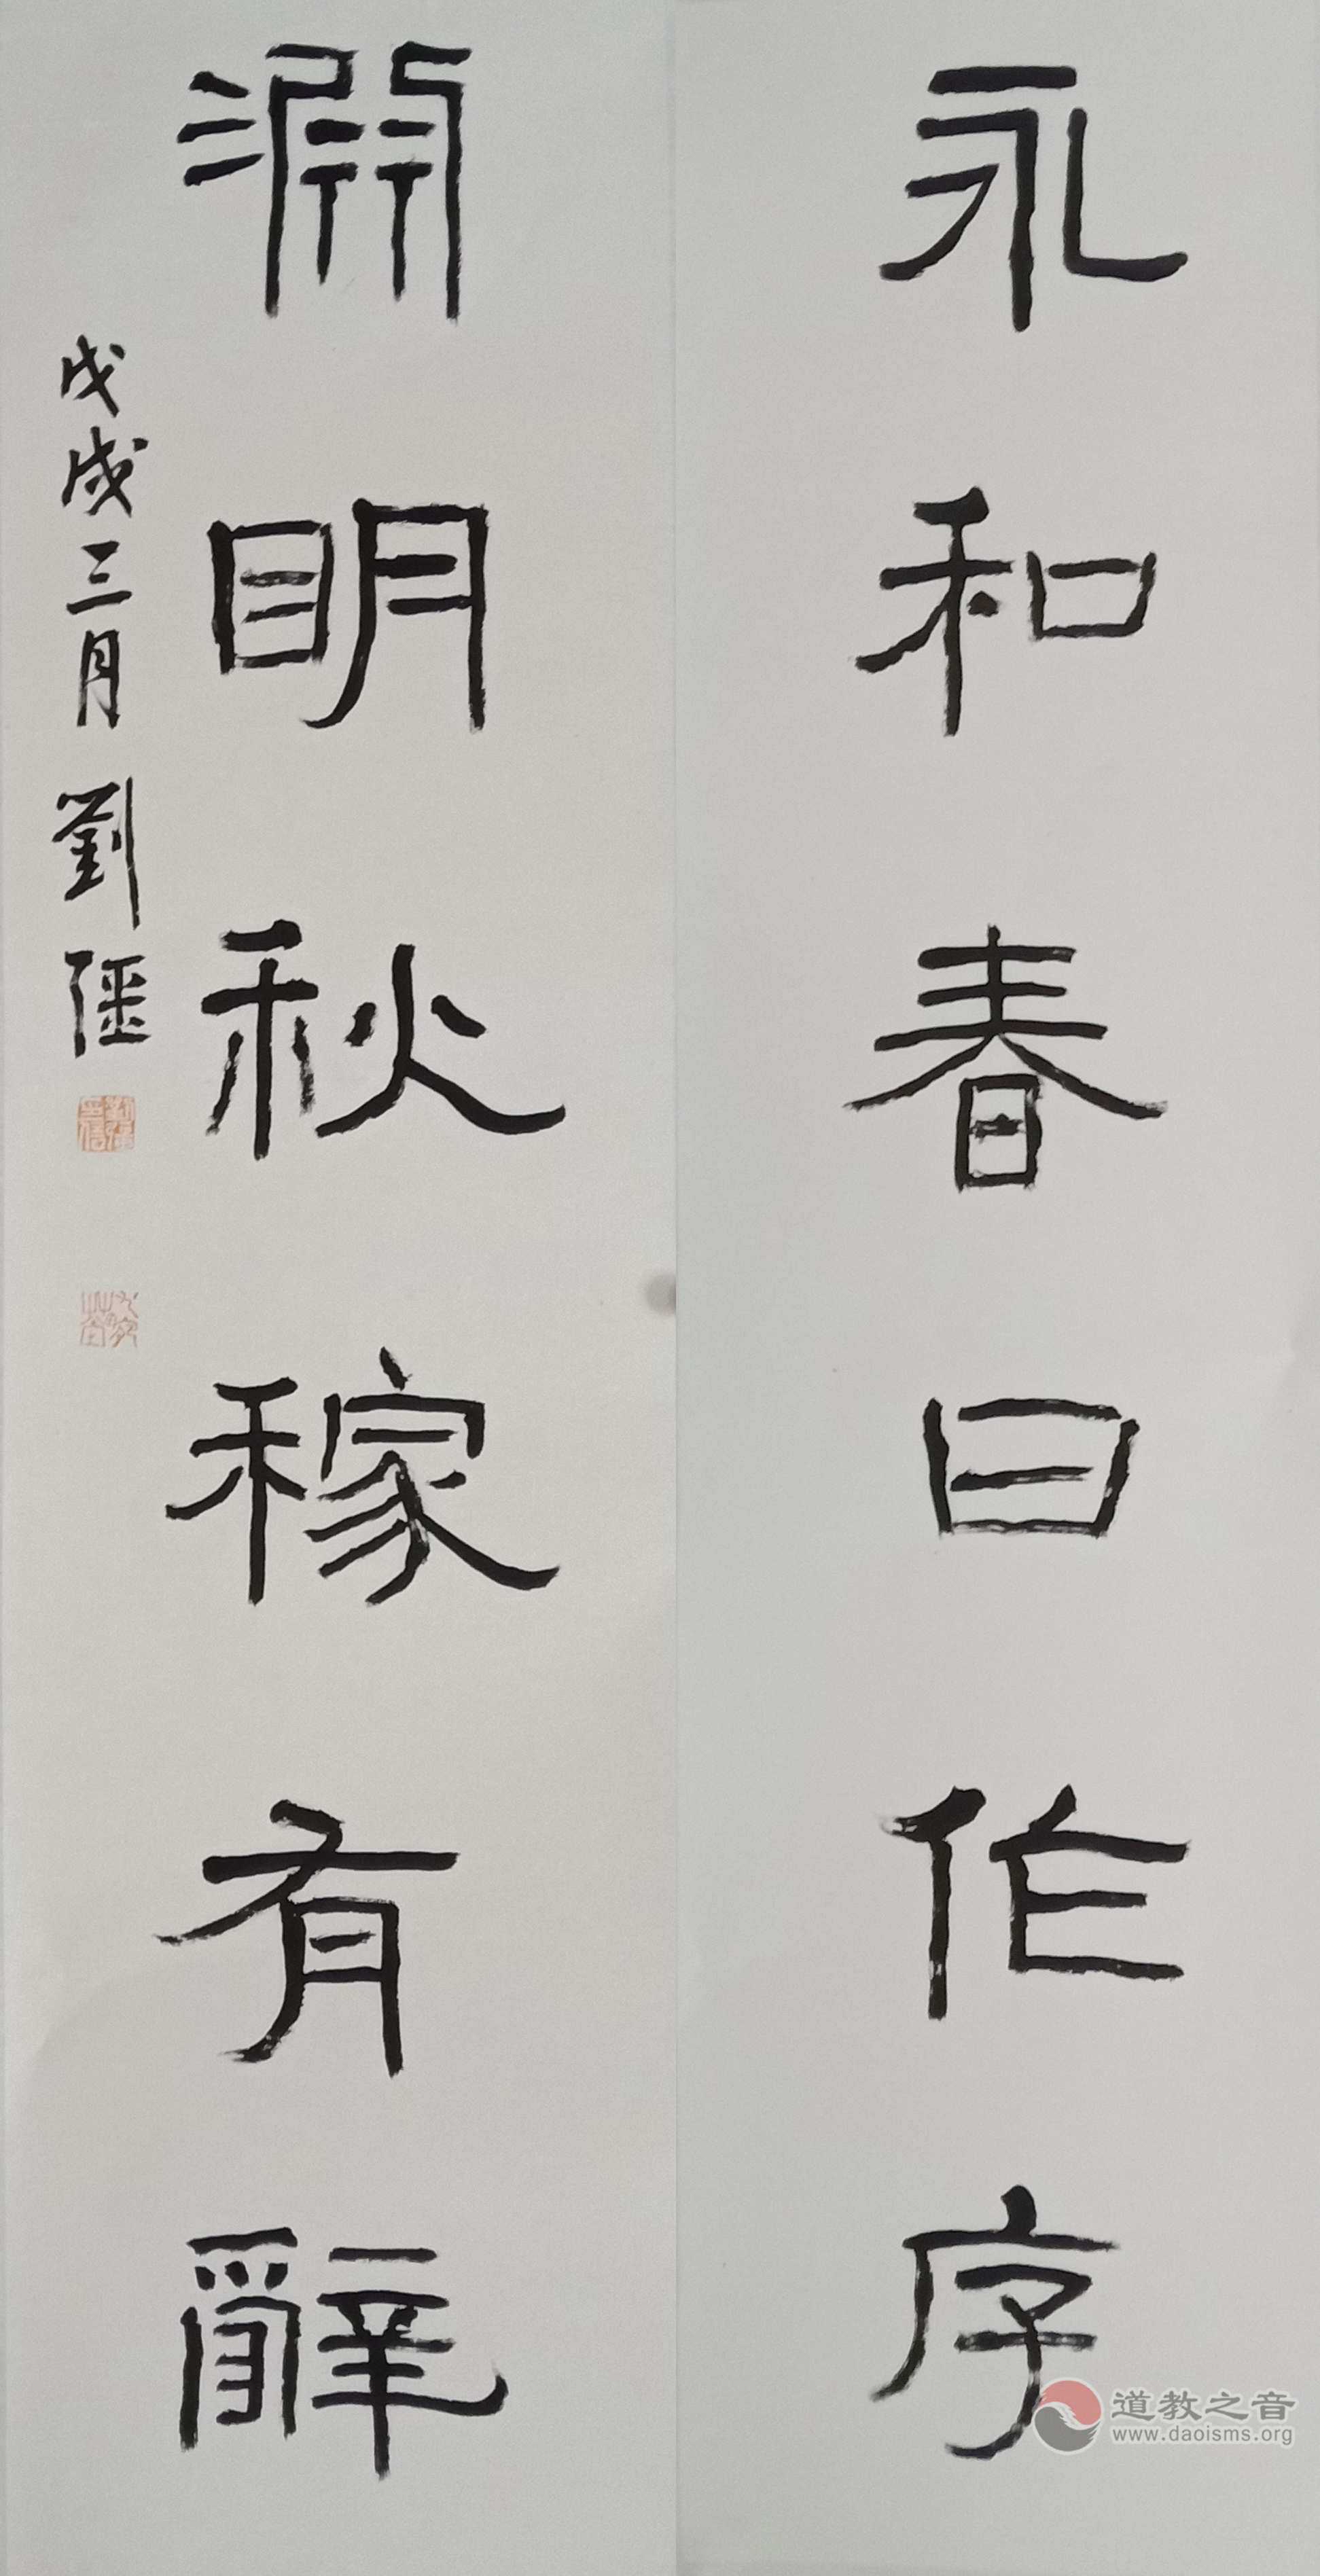 永和春日作序
淵明秋稼有辭
戊戌三月 劉彊
道教之音
www.daoisms.org